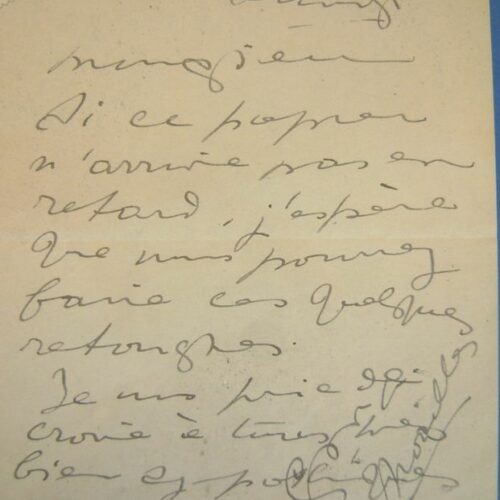 Monsieur
Si ce papier
n'arrive pas en
retard, j'espère
que vous pourrez
faire ces quelques
retouches.
Je vous prie de
croire à mes très
bien sympathiques